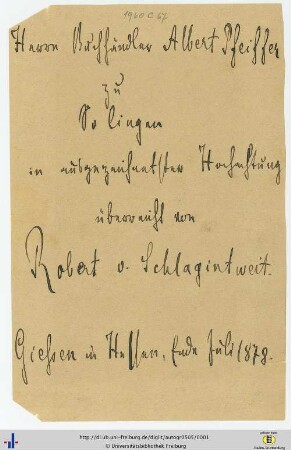 1960 C 67
Herrn Buchhändler Albert Pfeiffer
zu
Solingen
in ausgezeichnetster Hochachtung
überreicht von
Robert v. Schlagintweit.
Giessen in Hessen, Ende Juli 1878.
http://dl.ub.uni-freiburg.de/diglit/autogr0505/0001
© Universitätsbibliothek Freiburg